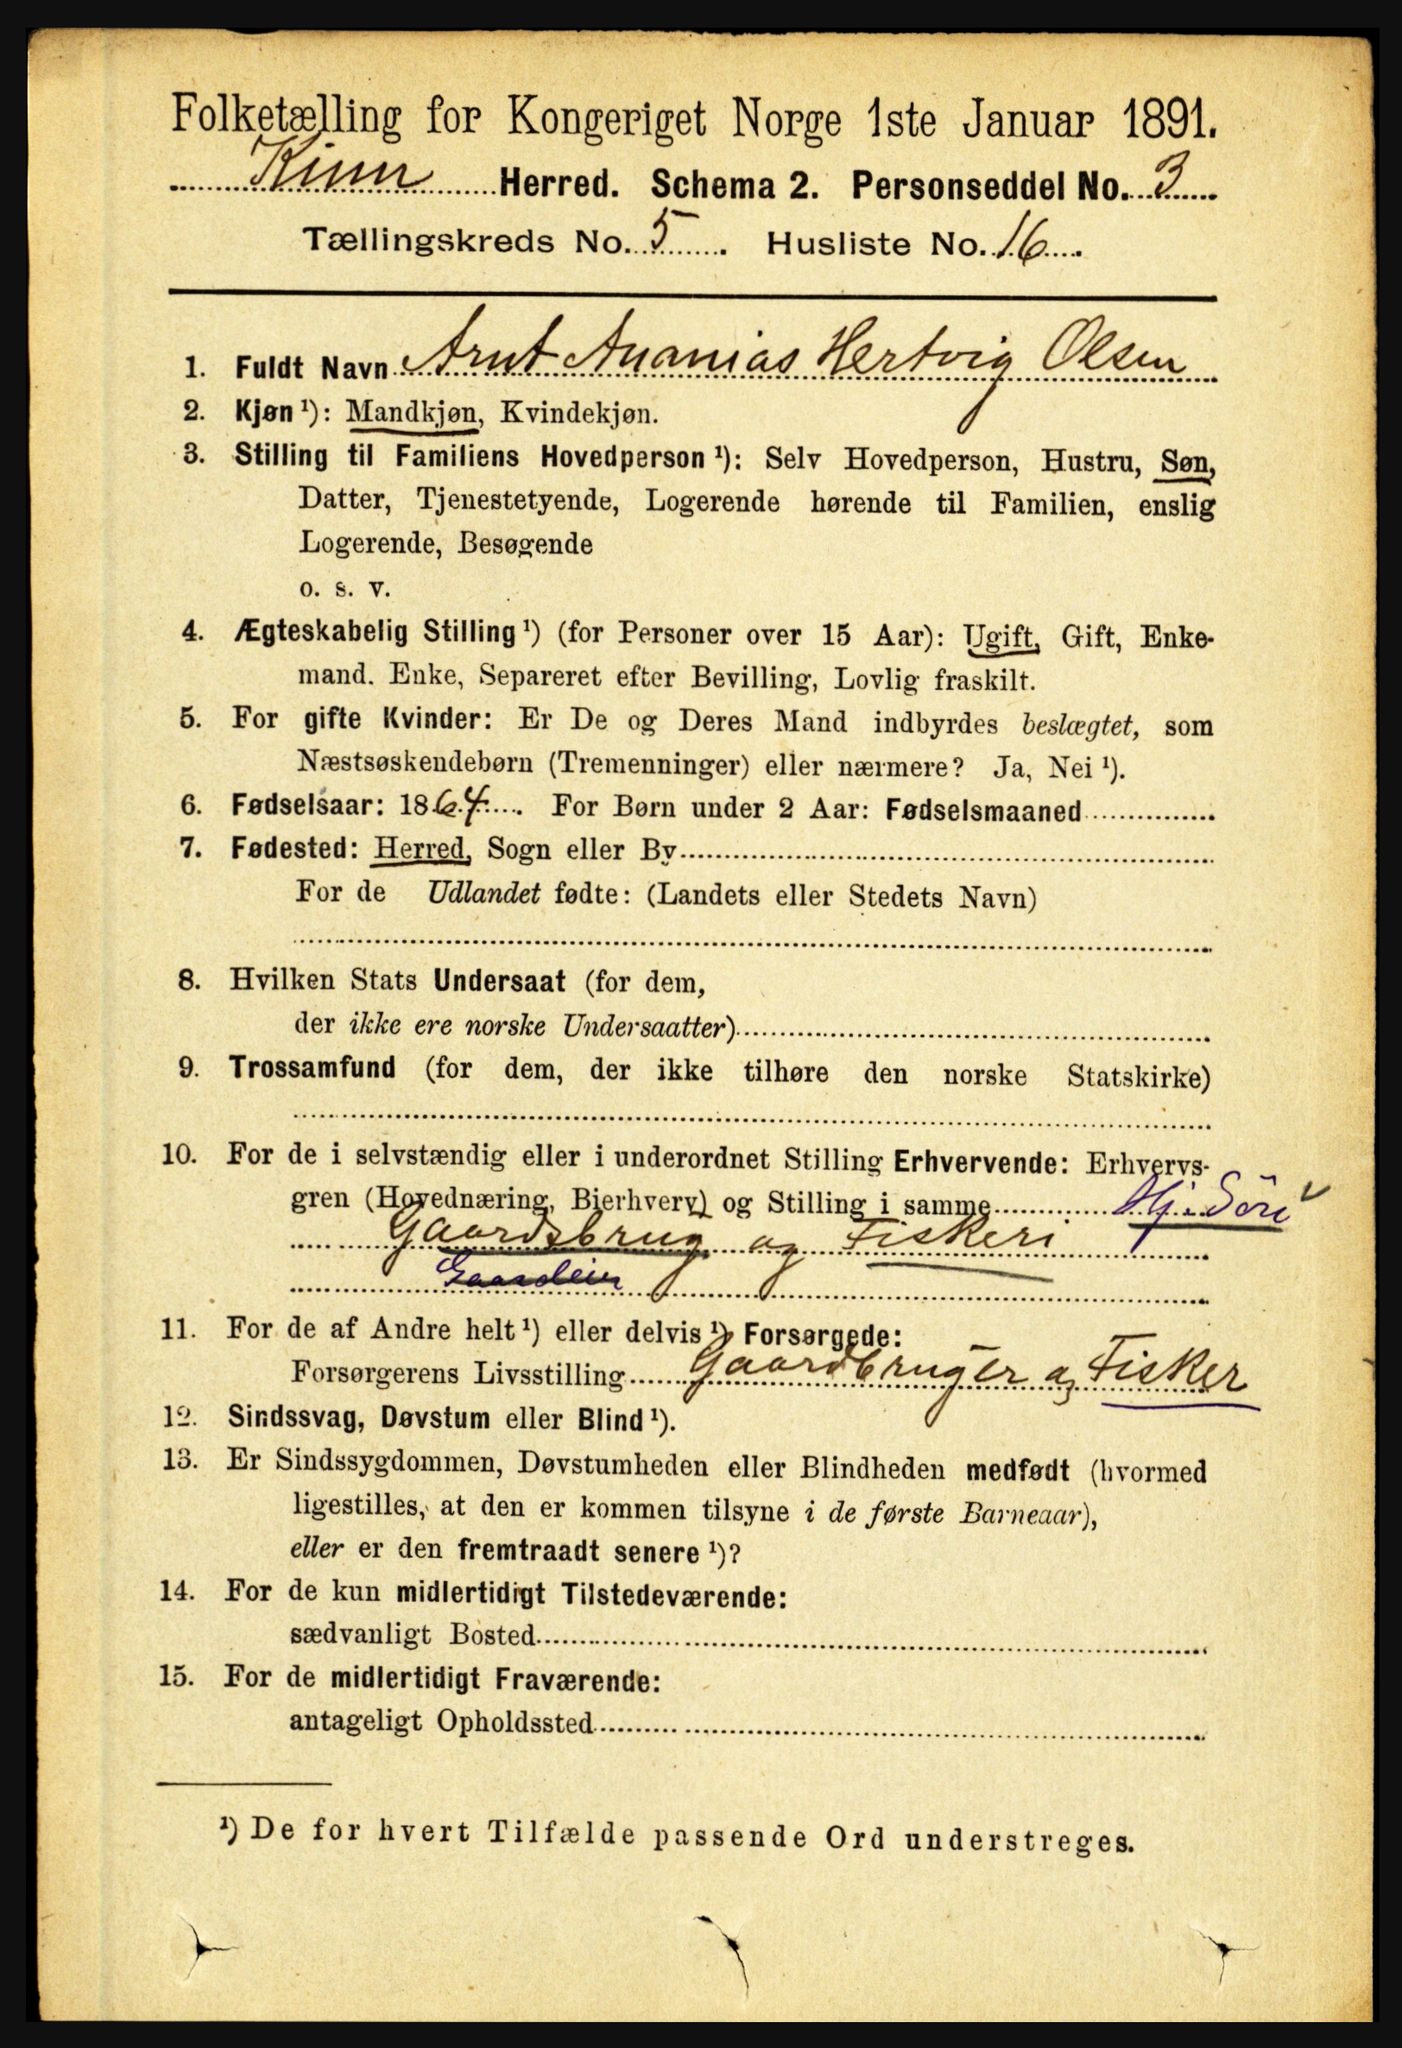 Folketælling for Kongeriget Norge 1ste Januar 1891.
Kinn Herred. Schema 2. Personseddel No. 3
Tællingskreds No. 5. Husliste No. 16.
1. Fuldt Navn Arnt Ananias Hertvig Olsen
2. Kjøn ¹): Mandkjøn, Kvindekjøn.
3. Stilling til Familiens Hovedperson ¹): Selv Hovedperson, Hustru, Søn,
Datter, Tjenestetyende, Logerende hørende til Familien, enslig
Logerende, Besøgende
o. s. v.
4. Ægteskabelig Stilling ¹) (for Personer over 15 Aar): Ugift, Gift, Enke-
mand. Enke, Separeret efter Bevilling, Lovlig fraskilt.
5. For gifte Kvinder: Er De og Deres Mand indbyrdes beslægtet, som
Næstsøskendebørn (Tremenninger) eller nærmere? Ja, Nei ¹).
6. Fødselsaar: 1864. For Børn under 2 Aar: Fødselsmaaned
7. Fødested: Herred, Sogn eller By
For de Udlandet fødte: (Landets eller Stedets Navn)
8. Hvilken Stats Undersaat (for dem,
der ikke ere norske Undersaatter)
9. Trossamfund (for dem, der ikke tilhøre den norske Statskirke)
10. For de i selvstændig eller i underordnet Stilling Erhvervende: Erhvervs-
gren (Hovednæring, Bierhverv) og Stilling i samme
Gaardsbrug og Fiskeri
11. For de af Andre helt ¹) eller delvis ¹) Forsørgede:
Forsørgerens Livsstilling Gaardbruger og Fisker
12. Sindssvag, Døvstum eller Blind ¹).
13. Er Sindssygdommen, Døvstumheden eller Blindheden medfødt (hvormed
ligestilles, at den er kommen tilsyne i de første Barneaar),
eller er den fremtraadt senere ¹)?
14. For de kun midlertidigt Tilstedeværende:
sædvanligt Bosted
15. For de midlertidigt Fraværende:
antageligt Opholdssted
¹) De for hvert Tilfælde passende Ord understreges.